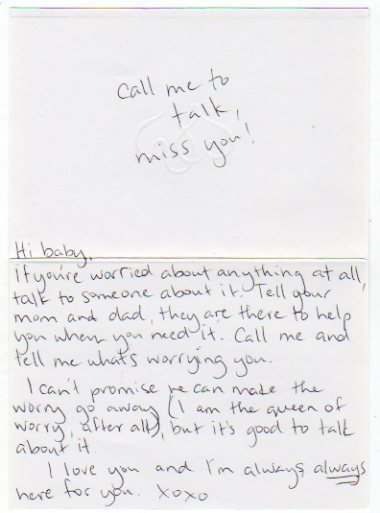 Call me to
talk,
miss you!
Hi baby,
If you're worried about anything at all,
talk to someone about it. Tell your
mom and dad, they are there to help
you when you need it. Call me and
tell me what's worrying you.
I can't promise we can make the
worry go away (I am the queen of
worry, after all), but it's good to talk
about it.
I love you and I'm always, always
here for you. xoxo